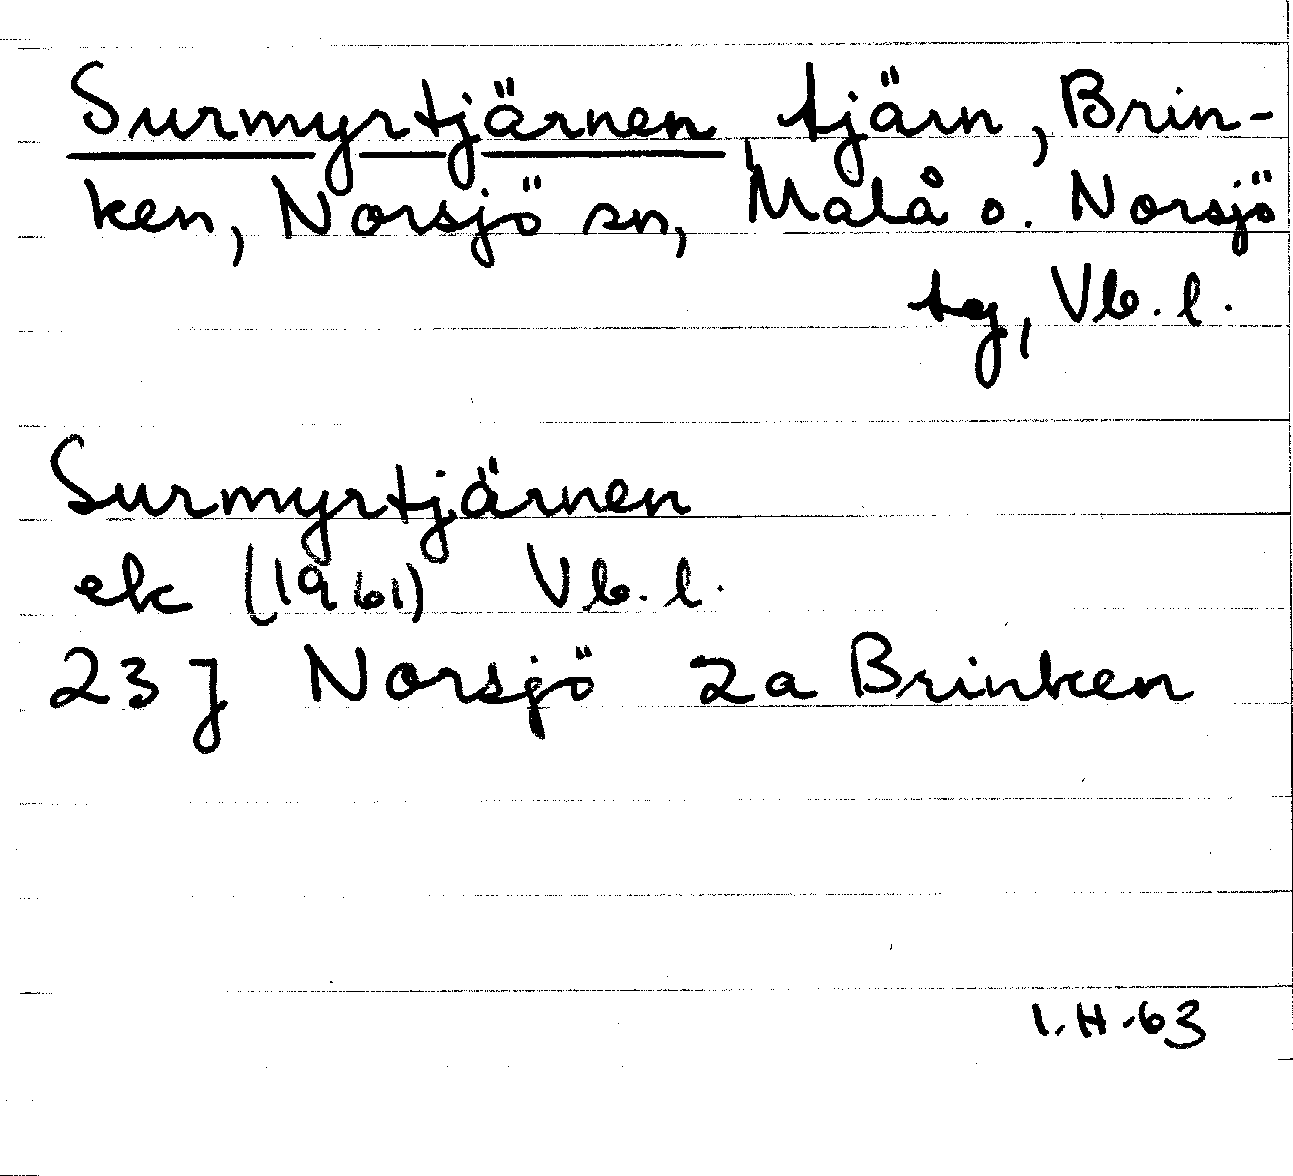 Surmyrtjärnen, tjärn, Brin-
ken, Norsjö sn, Malå o. Norsjö
tg, Vb. l.
Surmyrtjärnen
ek (1961) Vb. l.
23 J Norsjö 2a Brinken
I. H. 63